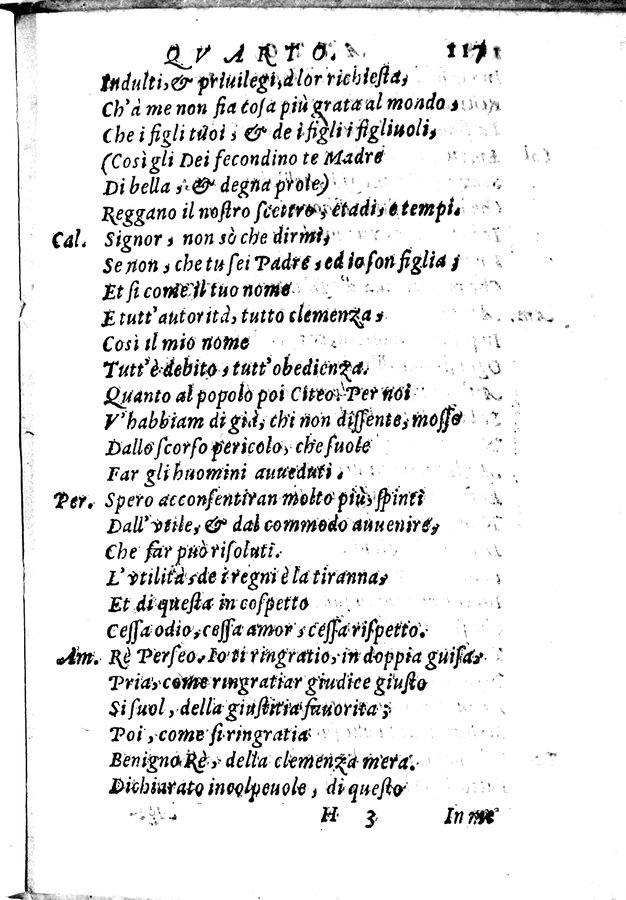 QVARTO. 117
Indulti, & priuilegi, à lor richiesta,
Ch'à me non fia cosa più grata al mondo,
Che i figli tuoi, & de i figli i figliuoli,
(Così gli Dei fecondino te Madre
Di bella, & degna prole)
Reggano il nostro scettro, etadi, e tempi.
Cal. Signor, non sò che dirmi,
Se non, che tu sei Padre, ed io son figlia;
Et si come il tuo nome
E tutt'autorità, tutto clemenza,
Così il mio nome
Tutt'è debito, tutt'obedienza.
Quanto al popolo poi Citeo: Per noi
V'habbiam di già, chi non dissente, mosso
Dallo scorso pericolo, che suole
Far gli huomini auueduti.
Per. Spero acconsentiran molto più, spinti
Dall'vtile, & dal commodo auuenire,
Che far può risoluti.
L'vtilità, de i regni è la tiranna,
Et di questa in cospetto
Cessa odio, cessa amor, cessa rispetto.
Am. Rè Perseo. Io ti ringratio, in doppia guisa,
Pria, come ringratiar giudice giusto
Si suol, della giustitia fauorita;
Poi, come si ringratia
Benigno Rè, della clemenza mera.
Dichiarato incolpeuole, di questo
H 3 In me